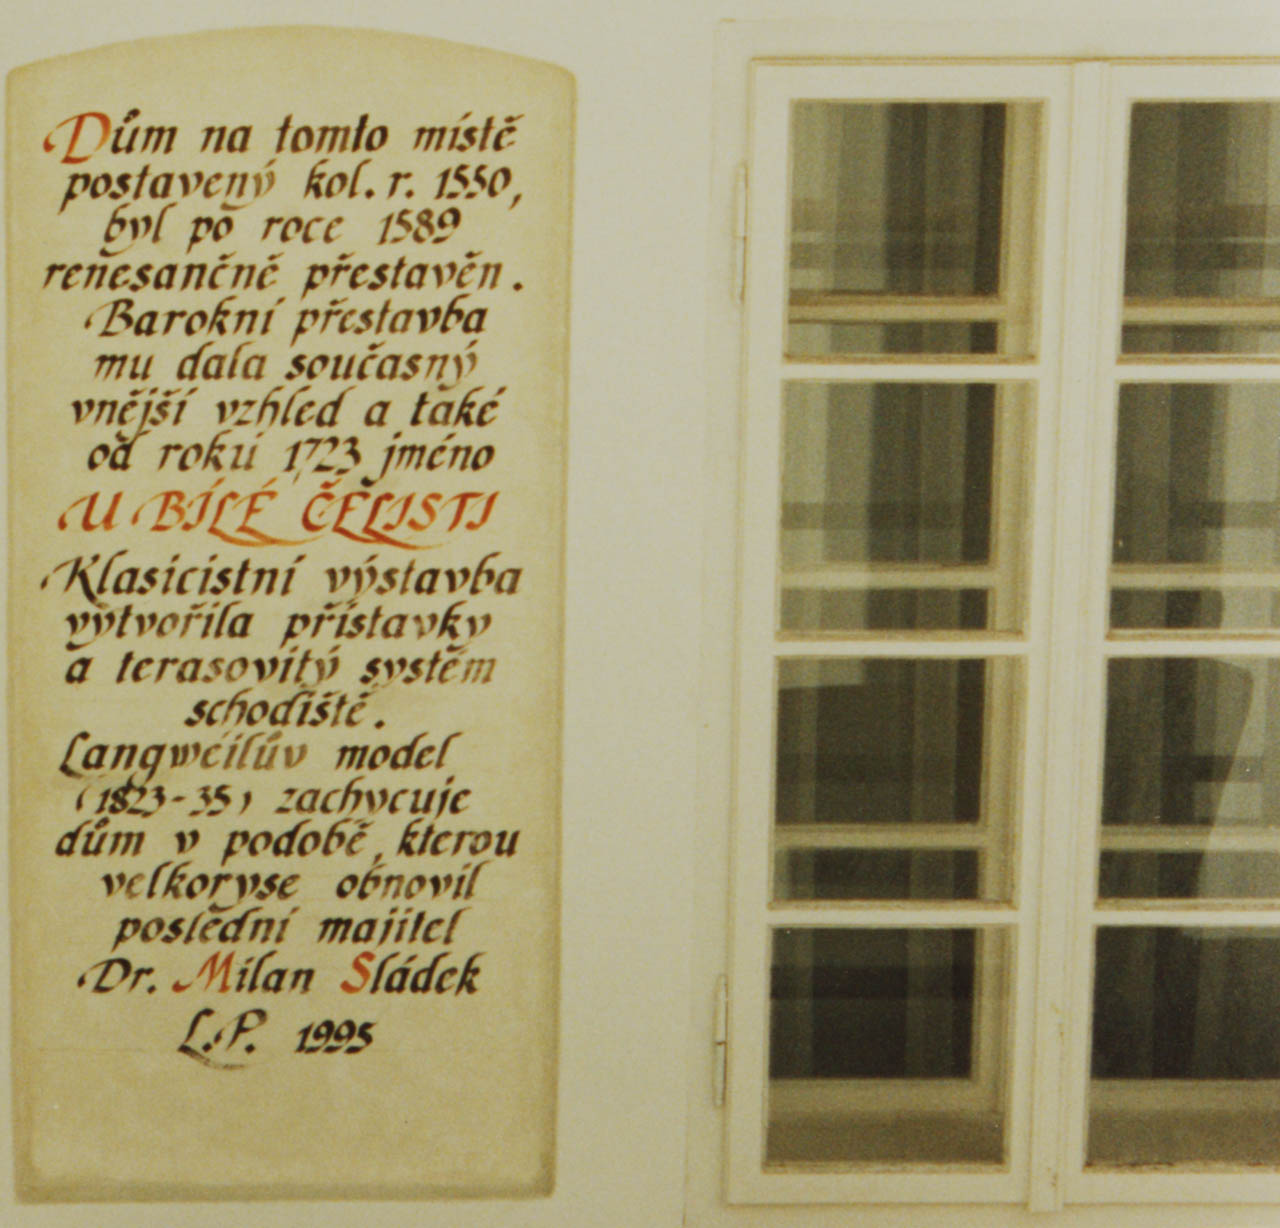 Dům na tomto místě
postavený kol. r. 1550,
byl po roce 1589
renesančně přestavěn.
Barokní přestavba
mu dala současný
vnější vzhled a také
od roku 1723 jméno
U BÍLÉ ČELISTI
Klasicistní výstavba
vytvořila přístavky
a terasovitý systém
schodiště.
Langweilův model
(1823-35) zachycuje
dům v podobě, kterou
velkoryse obnovil
poslední majitel
Dr. Milan Sládek
L.P. 1995